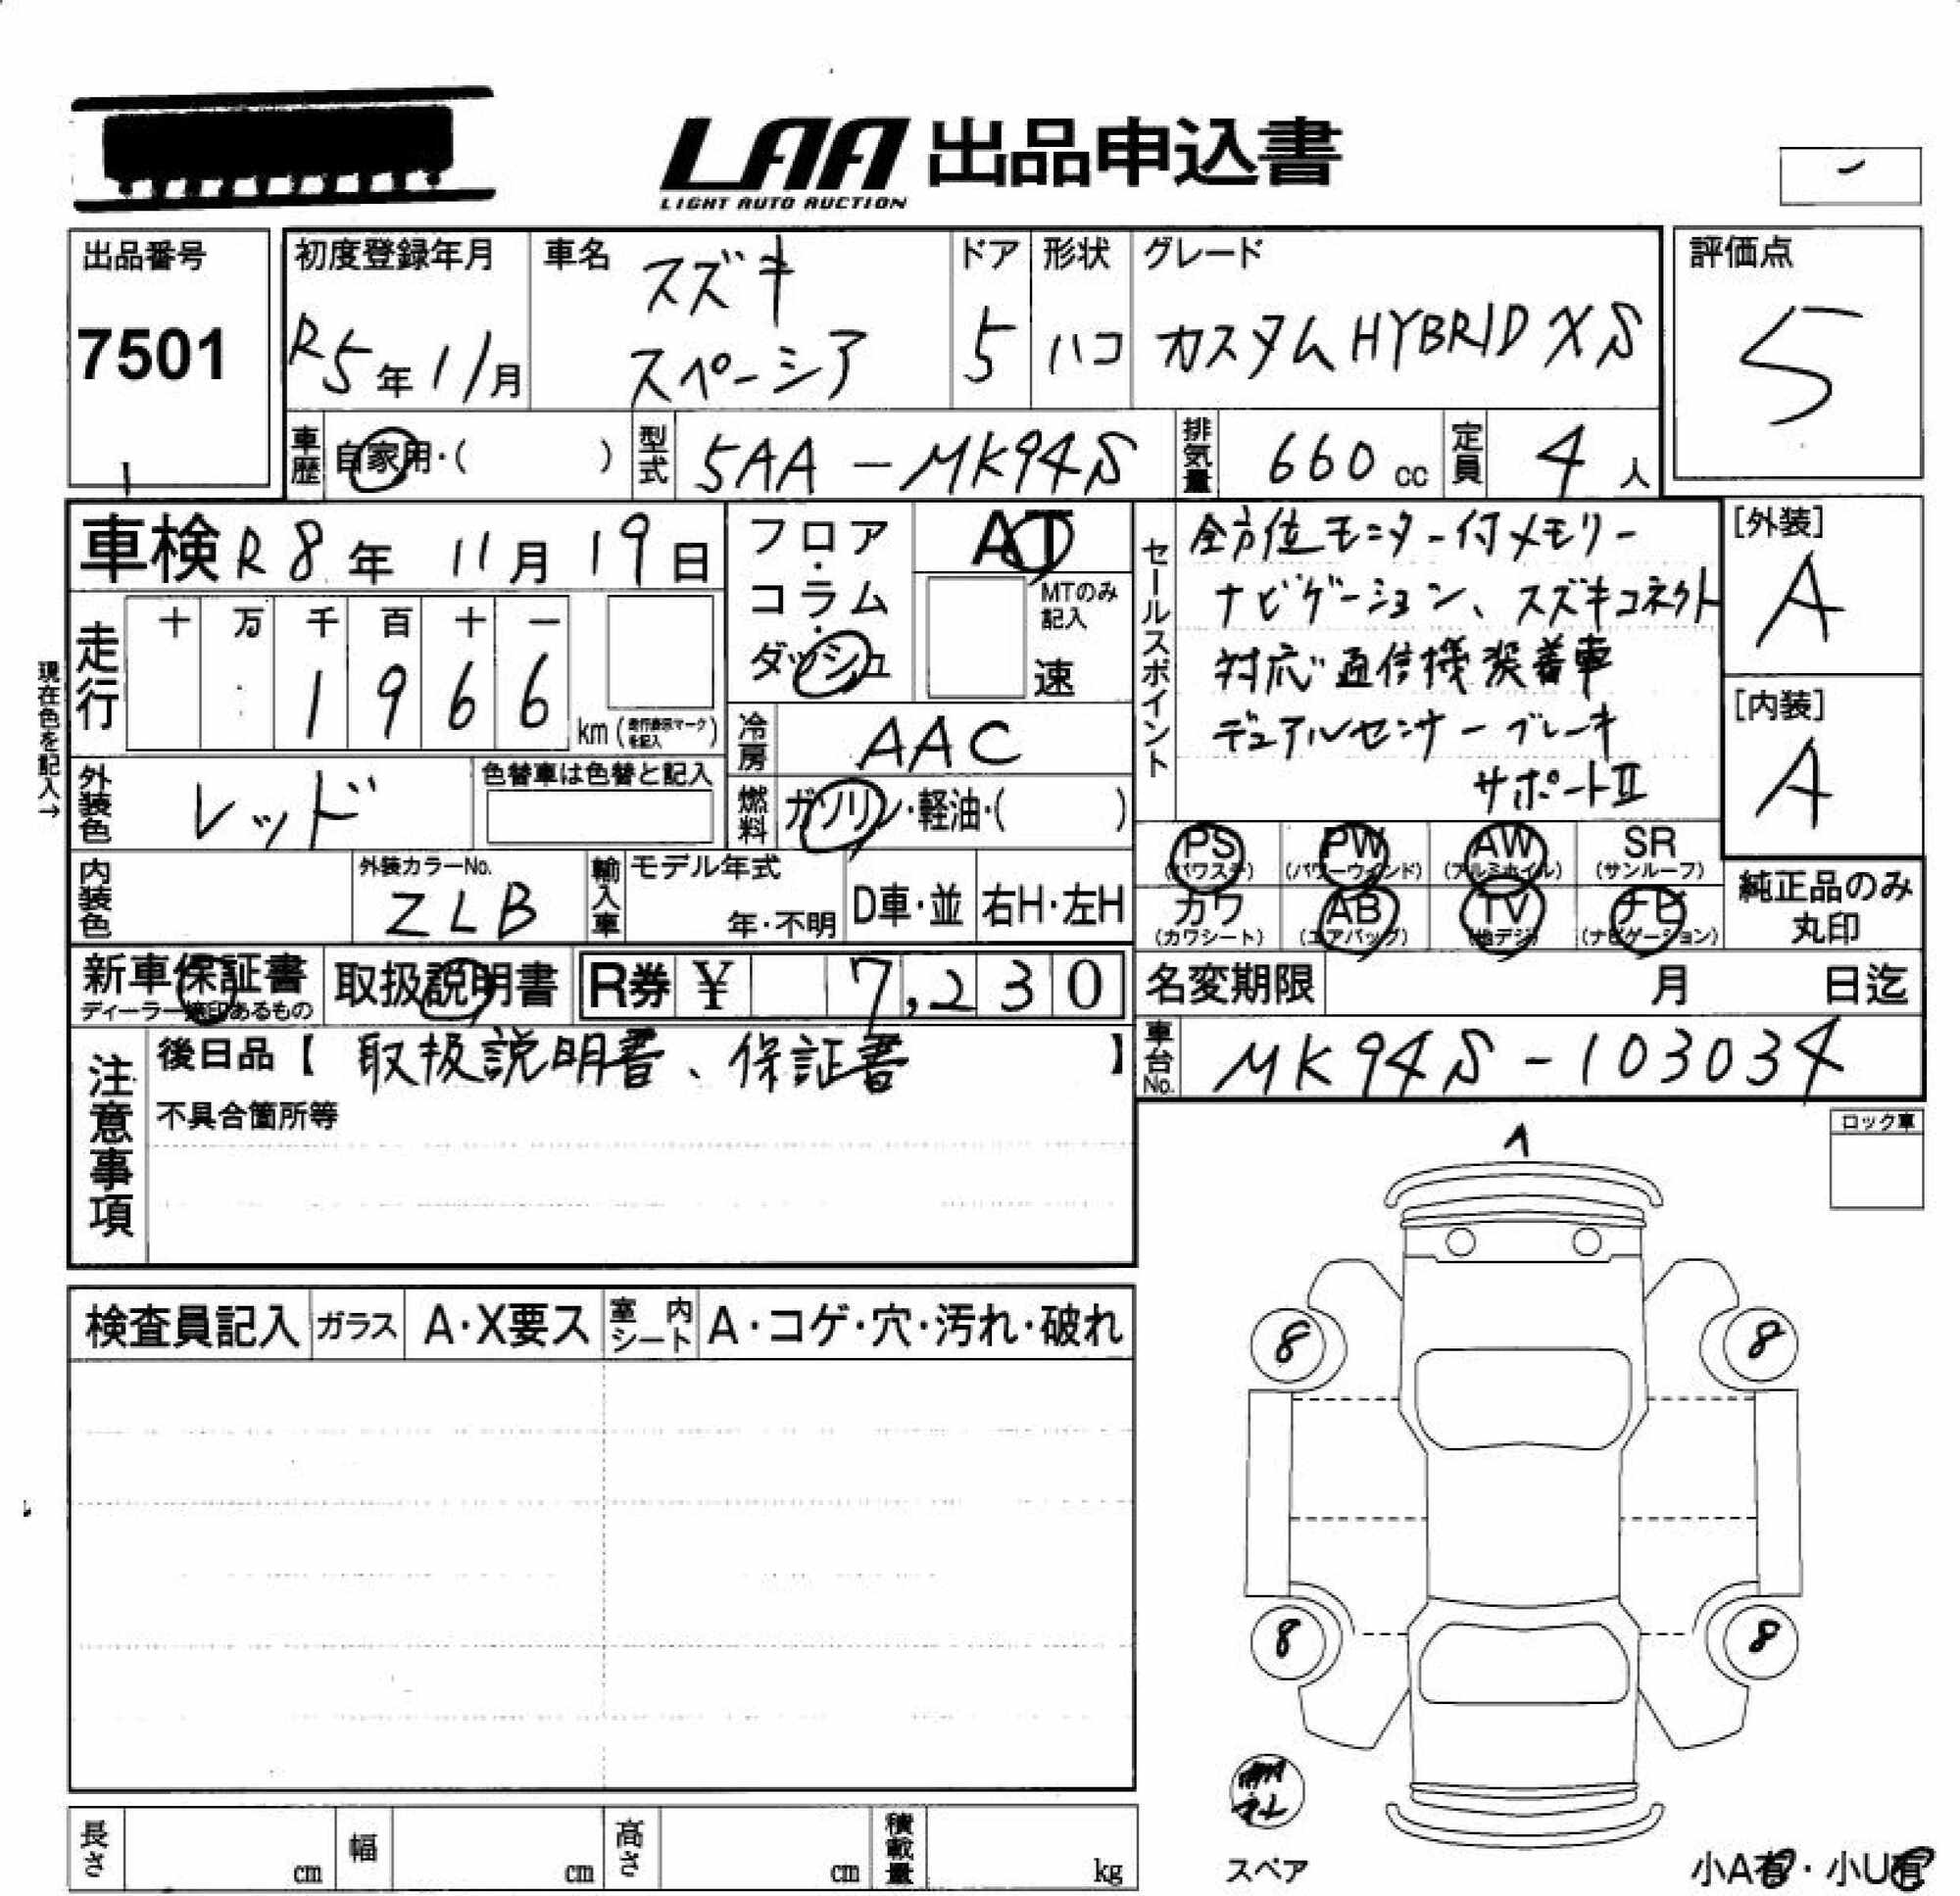 LAA 出品申込書
LIGHT AUTO AUCTION
出品番号
7501
初度登録年月
R5年11月
車名
スズキ
スペーシア
ドア
5
形状
ハコ
グレード
カスタム HYBRID XS
評価点
5
車歴
自家用・( )
型式
5AA-MK94S
排気量
660 cc
定員
4人
車検 R8年 11月 19日
フロア・コラム・ダッシュ
AT
MTのみ記入
速
セールスポイント
全方位モニター付メモリー
ナビゲーション、スズキコネクト
対応通信機装着車
デュアルセンサーブレーキ
サポートII
[外装]
A
[内装]
A
現在色を記入→
走行
十 万 千 百 十 一
1 9 6 6
km(走行表示マークを記入)
冷房
AAC
外装色
レッド
色替車は色替と記入
燃料
ガソリン・軽油・( )
内装色
外装カラーNo.
ZLB
輸入車
モデル年式
年・不明
D車・並
右H・左H
PS (パワステ)
PW (パワーウィンド)
AW (アルミホイル)
SR (サンルーフ)
カワ (カワシート)
AB (エアバッグ)
TV (地デジ)
ナビ (ナビゲーション)
純正品のみ
丸印
新車保証書
ディーラー捺印あるもの
取扱説明書
R券 ¥ 7,230
名変期限 月 日迄
注意事項
後日品【 取扱説明書、保証書 】
不具合箇所等
車台No.
MK94S-103034
ロック車
検査員記入
ガラス
A・X要ス
室内シート
A・コゲ・穴・汚れ・破れ
8 8
8 8
スペア
長さ cm
幅 cm
高さ cm
積載量 kg
小A有・小U有